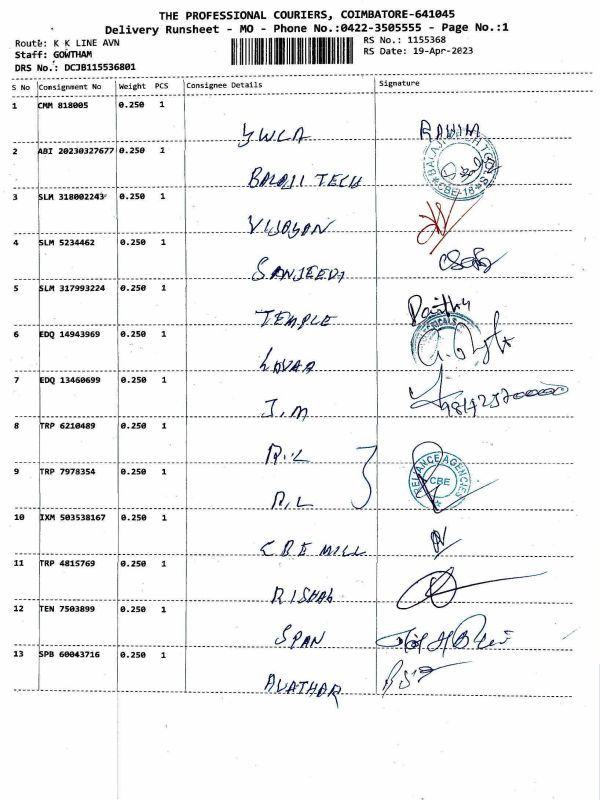 THE PROFESSIONAL COURIERS, COIMBATORE-641045
Delivery Runsheet - MO - Phone No.:0422-3505555 - Page No.:1
Route: K K LINE AVN
RS No.: 1155368
Staff: GOWTHAM
RS Date: 19-Apr-2023
DRS No.: DCJB115536801
S No Consignment No Weight PCS Consignee Details Signature
1 CMM 818005 0.250 1
YWCA
2 ABI 20230327677 0.250 1
BALAJI TECH
3 SLM 318002243 0.250 1
VIJAYAN
4 SLM 5234462 0.250 1
SANJEEVI
5 SLM 317993224 0.250 1
TEMPLE
6 EDQ 14943969 0.250 1
7 EDQ 13460699 0.250 1
J.M
8 TRP 6210489 0.250 1
R.L
9 TRP 7978354 0.250 1
R.L
RELIANCE AGENCIES
CBE
10 IXM 503538167 0.250 1
CBE MILL
11 TRP 4815769 0.250 1
RISHAB
12 TEN 7503899 0.250 1
SPAN
13 SPB 60043716 0.250 1
AVATHAR